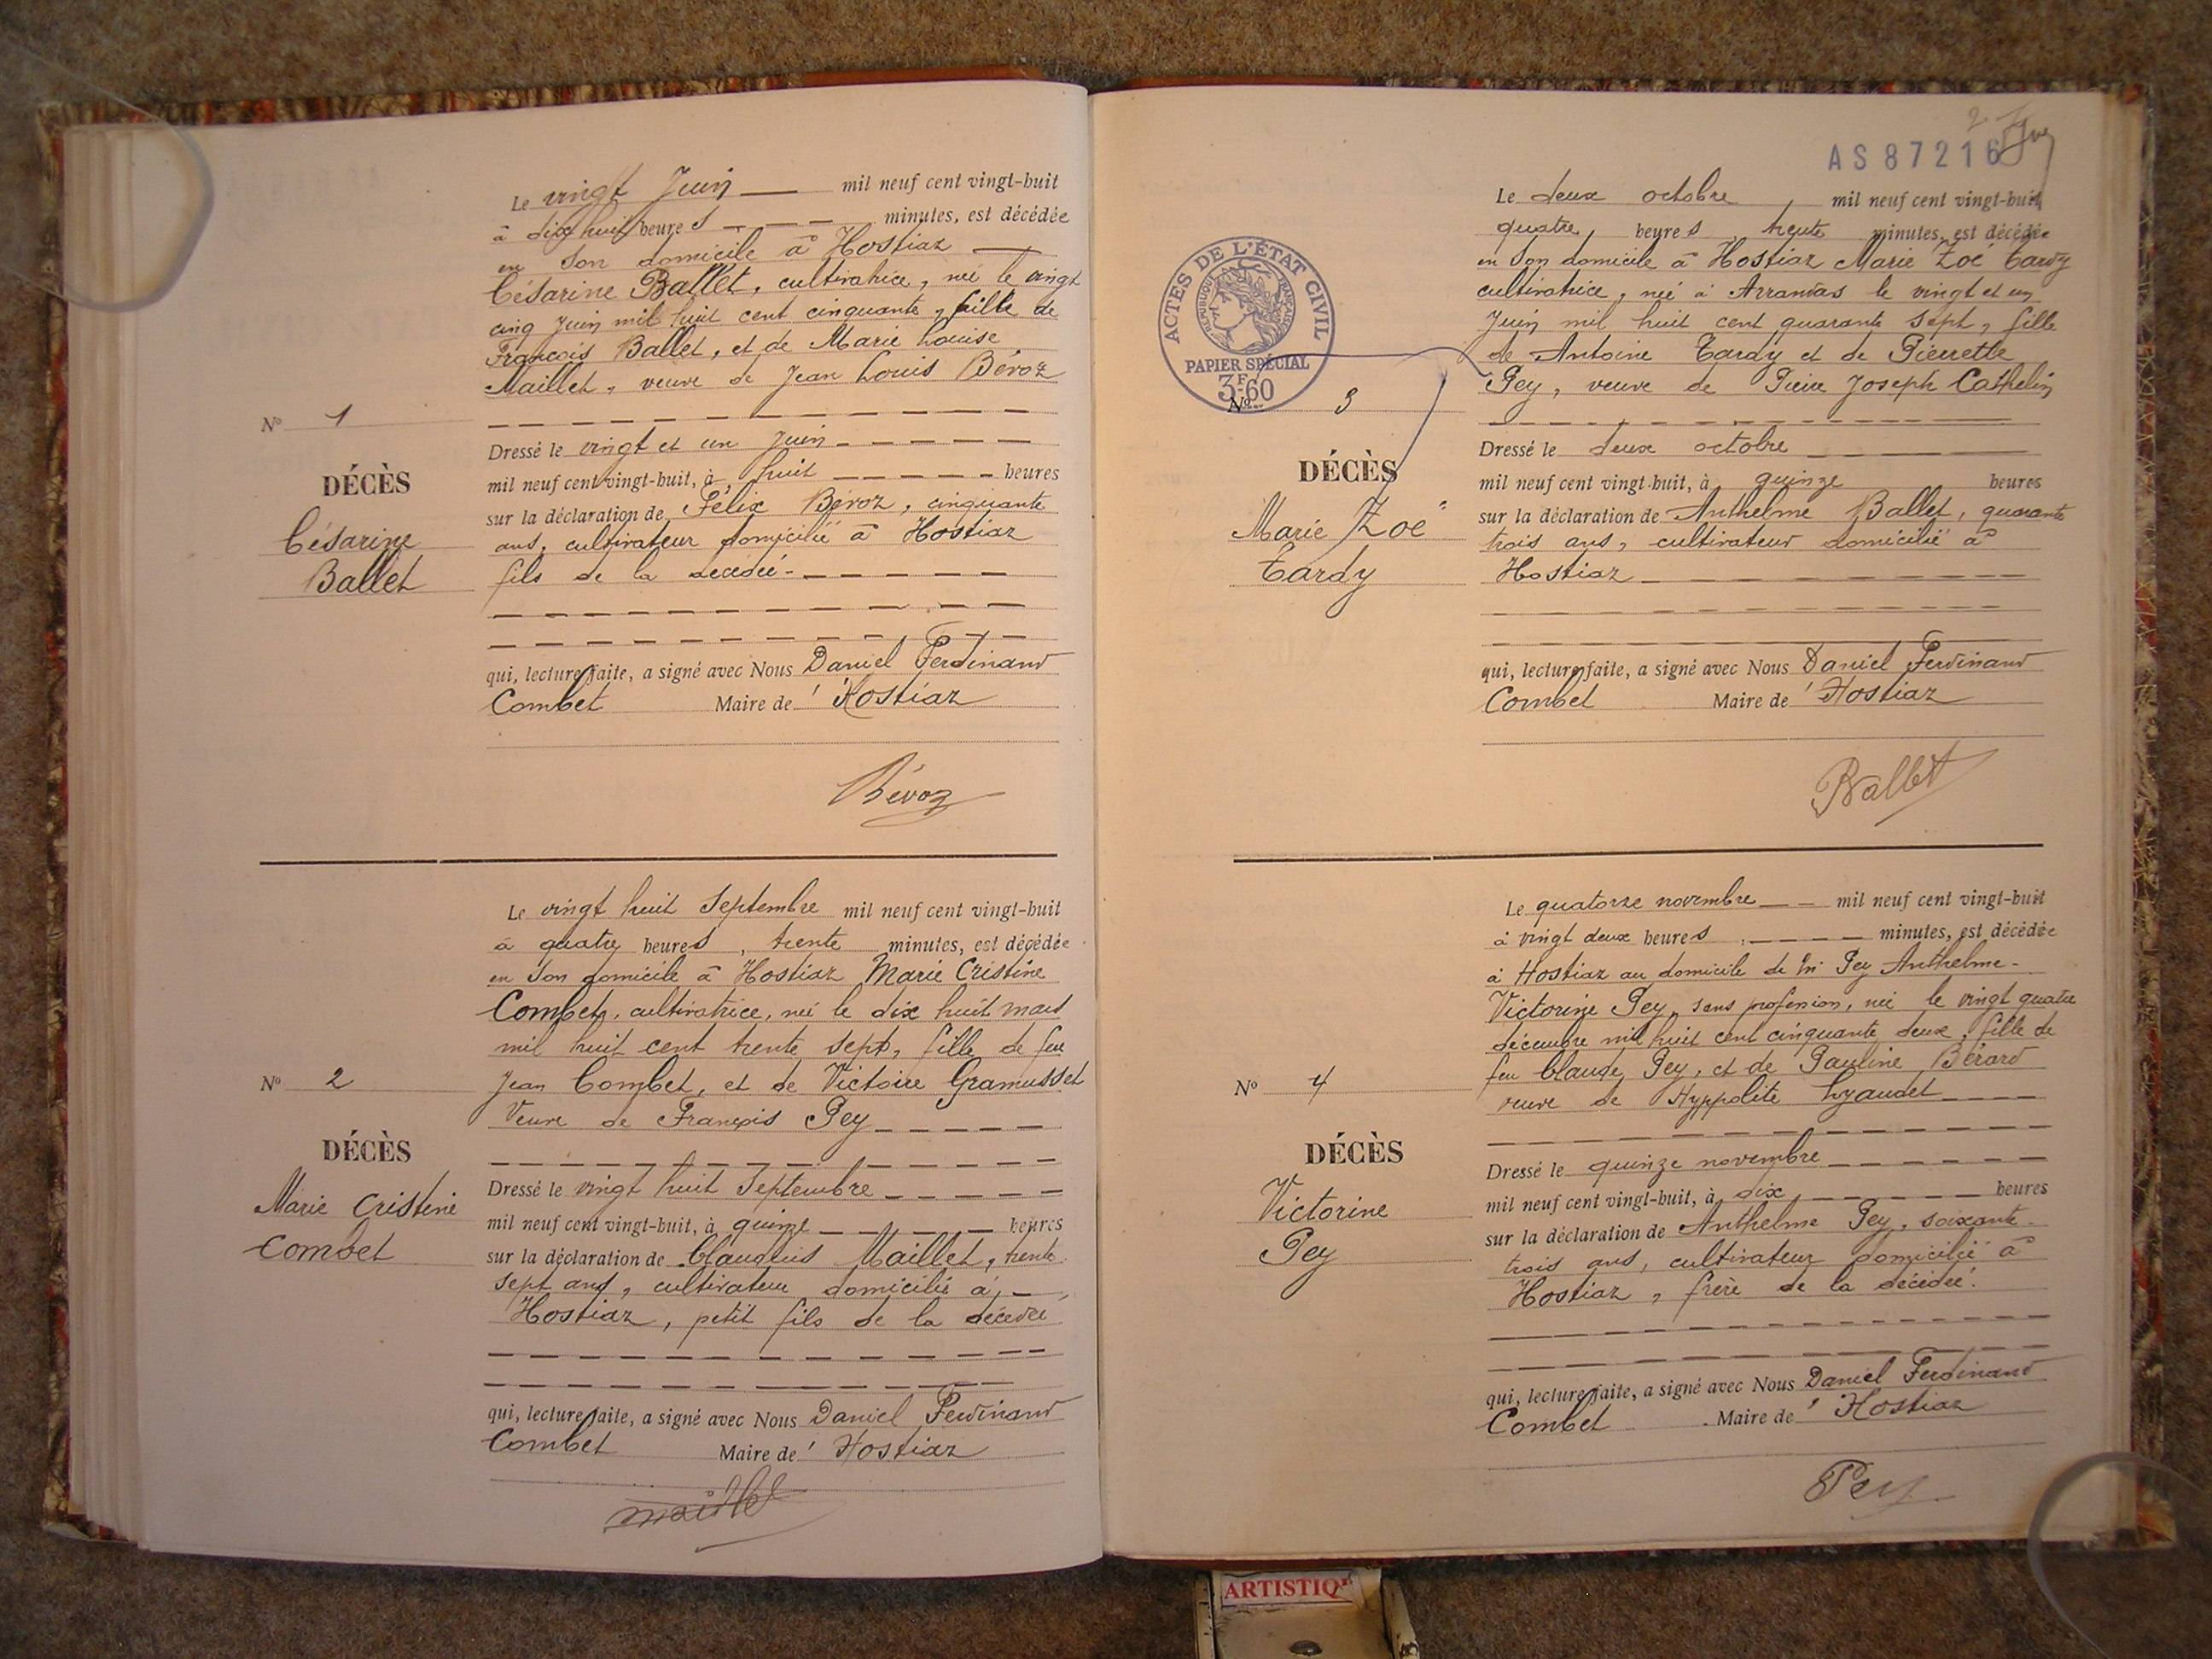 Le vingt Juin mil neuf cent vingt-huit
à dix huit heures minutes, est décédée
en son domicile à Hostiaz
Césarine Ballet, cultivatrice, née le vingt
cinq Juin mil huit cent cinquante, fille de
François Ballet, et de Marie Louise
Maillet, veuve de Jean Louis Bévoz
N° 1
DÉCÈS
Césarine
Ballet
Dressé le vingt et un Juin
mil neuf cent vingt-huit, à huit heures
sur la déclaration de Félix Bévoz, cinquante
ans, cultivateur domicilié à Hostiaz
fils de la décédée
qui, lecture faite, a signé avec Nous Daniel Ferdinand
Combet Maire de Hostiaz
Bévoz
Le vingt huit Septembre mil neuf cent vingt-huit
à quatre heures, trente minutes, est décédée
en son domicile à Hostiaz Marie Cristine
Combet, cultivatrice, née le dix huit mars
mil huit cent trente sept, fille de feu
Jean Combet, et de Victoire Gramusset
Veuve de François Pey
N° 2
DÉCÈS
Marie Cristine
Combet
Dressé le vingt huit Septembre
mil neuf cent vingt-huit, à quinze heures
sur la déclaration de Claudius Maillet, trente
sept ans, cultivateur domicilié à
Hostiaz, petit fils de la décédée
qui, lecture faite, a signé avec Nous Daniel Ferdinand
Combet Maire de Hostiaz
maillet
AS 87216
ACTES DE L'ÉTAT CIVIL
RÉPUBLIQUE FRANÇAISE
PAPIER SPÉCIAL
3F60
Le deux octobre, mil neuf cent vingt-huit
quatre heures, trente minutes, est décédée
en son domicile à Hostiaz Marie Zoé Tardy
cultivatrice, née à Arrandas le vingt et un
Juin mil huit cent quarante sept, fille
de Antoine Tardy et de Pierrette
Pey, veuve de Pierre Joseph Cathelin
N° 3
DÉCÈS
Marie Zoé
Tardy
Dressé le deux octobre
mil neuf cent vingt-huit, à quinze heures
sur la déclaration de Anthelme Ballet, quarante
trois ans, cultivateur domicilié à
Hostiaz
qui, lecture faite, a signé avec Nous Daniel Ferdinand
Combet Maire de Hostiaz
Ballet
Le quatorze novembre mil neuf cent vingt-huit
à vingt deux heures, minutes, est décédée
à Hostiaz au domicile de Mr Pey Anthelme
Victorine Pey, sans profession, née le vingt quatre
décembre mil huit cent cinquante deux, fille de
feu Claude Pey, et de Pauline Bérard
veuve de Hyppolite Lyaudet
N° 4
DÉCÈS
Victorine
Pey
Dressé le quinze novembre
mil neuf cent vingt-huit, à dix heures
sur la déclaration de Anthelme Pey, soixante
trois ans, cultivateur domicilié à
Hostiaz, frère de la décédée.
qui, lecture faite, a signé avec Nous Daniel Ferdinand
Combet Maire de Hostiaz
Pey
ARTISTIQ